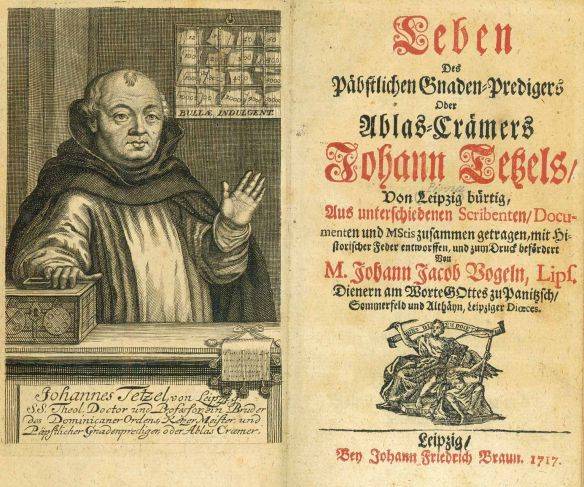 BULLÆ INDULGENT.
Johannes Tetzel von Leipzig
S.S. Theol. Doctor und Profeſsor, ein Bruder
des Dominicaner Ordens, Ketzer Meister und
Päpstlicher Gnadenprediger, oder Ablas Cræmer.
Leben
Des
Päbstlichen Gnaden-Predigers
Oder
Ablas-Crämers
Johann Tetzels/
Von Leipzig bürtig,
Aus unterschiedenen Scribenten/ Docu-
menten und MStis zusammen getragen, mit Hi-
storischer Feder entworffen, und zum Druck befördert
Von
M. Johann Jacob Vogeln, Lips.
Dienern am Worte GOttes zu Panitzsch/
Sommerfeld und Althäyn, Leipziger Diœces.
Leipzig/
Bey Johann Friedrich Braun. 1717.